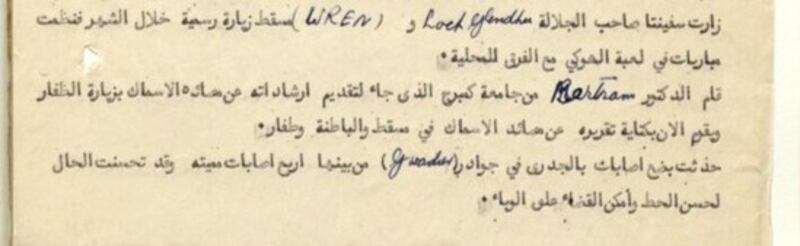 زارت سفينتا صاحب الجلالة Loch Glendhu و (WREN) مسقط زيارة رسمية خلال الشهر فنظمت
مباريات في لعبة الهوكي مع الفرق المحلية ٠
قام الدكتور Bartram من جامعة كمبرج الذى جاء لتقديم ارشاداته عن صائده الاسماك بزيارة الظفار
ويقوم الان بكتابة تقريره عن صائد الاسماك في مسقط والباطنة وظفار ٠
حدثت بضع اصابات بالجدرى في جوادر (Gwadur) من بينها اربع اصابات مميته وقد تحسنت الحال
لحسن الحظ وأمكن القضاء على الوباء ٠